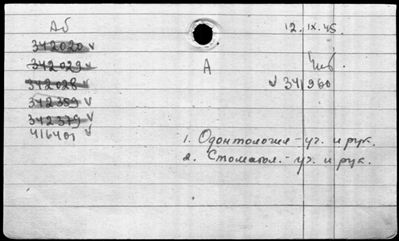 Аб
12.IX.45.
342020 v
342029 v
А
342028 v
v 341960
342359 v
342379 v
416401 v
1. Одонтология - уч. и рук.
2. Стоматол. - уч. и рук.